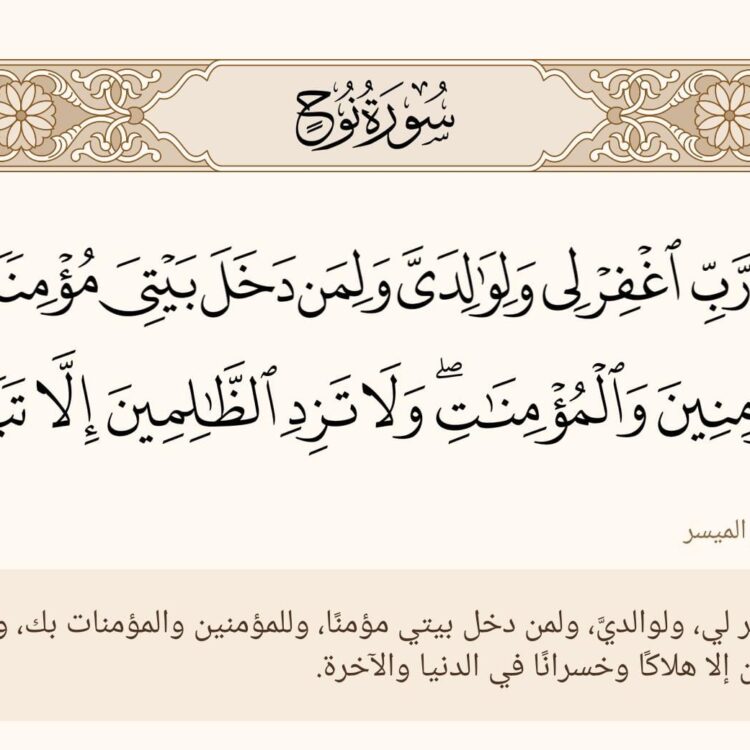 سُورَةُ نُوحٍ
رَّبِّ ٱغْفِرْ لِى وَلِوَٰلِدَىَّ وَلِمَن دَخَلَ بَيْتِىَ
وَٱلْمُؤْمِنَـٰتِۖ وَلَا تَزِدِ ٱلظَّـٰلِمِينَ إِلَّا
الميسر
لي، ولوالديَّ، ولمن دخل بيتي مؤمنًا، وللمؤمنين والمؤمنات بك،
إلا هلاكًا وخسرانًا في الدنيا والآخرة.